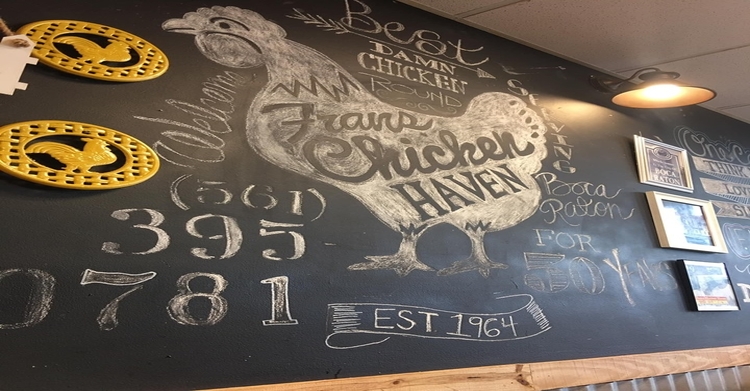 Best
DAMN
CHICKEN
AROUND
Welcome
Frans
Chicken
HAVEN
SERVING
Boca
Raton
FOR
50 Years
(561)
395
0781
EST. 1964
BOCA
RATON